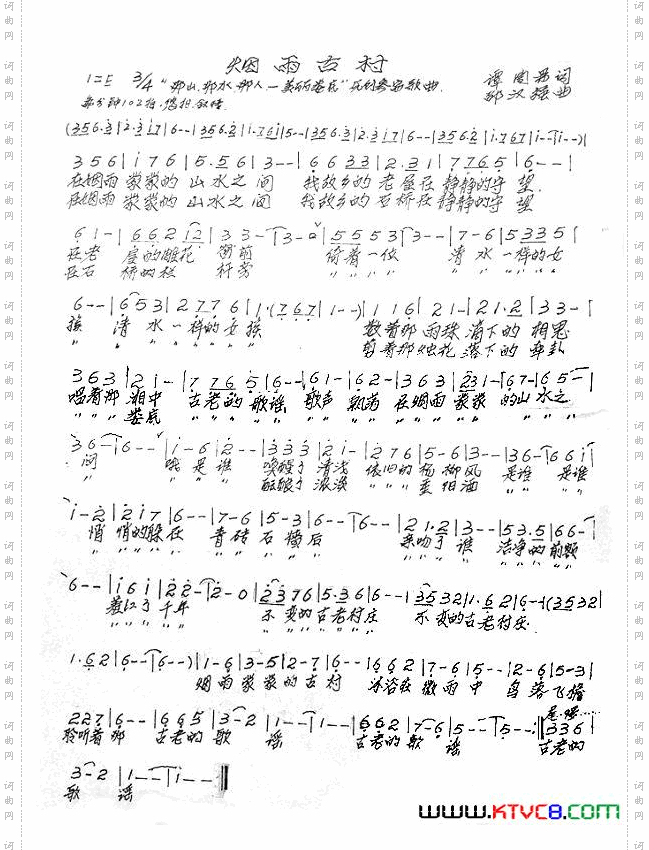 烟雨古村
1=E 3/4 "那山、那水、那人—美丽娄底"
谭周易词
邓汉振曲
每分钟102拍
(356·3|2·317|6--|356·2|1·761|5--|356·3|2·317|6--|356·2|17 67|1--|1--)|
356|176|5·56|3--|6633|2·31|7765|6--|
在烟雨 蒙蒙的 山水之间 我故乡的 老屋在 静静的守望
在烟雨 蒙蒙的 山水之间 我故乡的 石桥在 静静的守望
61-|66212|33-|3-0|5553|3--|7-6|5335|
在老 屋的雕花 窗前 倚着一位 清水一样的女
在石 桥的栏杆旁 " " " " " " " " " "
6--|653|2776|1·(767|1--)|116|21-|21·2|33-|
孩 清水一样的女孩 数着那 雨珠 滴下的 相思
" " " " " " " 剪着那烛花 落下的 牵卦
363|21-|7765|6--|61-|62-|363|231-|67-|65-|
唱着那 湘中 古老的 歌谣 歌声 飘荡 在烟雨 蒙蒙 的山水之
" " " 娄底 " " " " " " " " " " " " " " " " " "
36-|6--|1-6|2--|333|21-|276|5-6|3--|36-|661|
间 哦是谁 唤醒了 清浅 依旧的 杨柳风 是谁 是谁
" " " " " " " "
1-2|217|6--|7-6|5-3|6--|6--|21·2|3--|53·5|66-|
悄 悄的躲在 青砖石墙后 亲吻了 谁 洁净的 前额
" " " " " " " " " " " " " " " " " "
6--|161|22-|2-0|2376|5·36|6--|3532|1·62|6--(3532|
羞红了 千年 不变的古老村庄 不变的古老村庄
" " " " " " " " " " " "
1·62|6--|6--)|1-6|3-5|2-7|6--|662|7-6|5--|2-6|5-3|
烟雨蒙蒙的古村 沐浴在 微雨中 鸟落飞檐
227|6--|665|3-2|1--|1--|662|7-6|5--|5--:‖336|
聆听着那 古老的歌谣 古老的歌谣 古老的
3-2|1--|1--‖
歌谣
WWW.KTVC8.COM
词曲网
词曲网
词曲网
词曲网
词曲网
词曲网
词曲网
词曲网
词曲网
词曲网
词曲网
词曲网
词曲网
词曲网